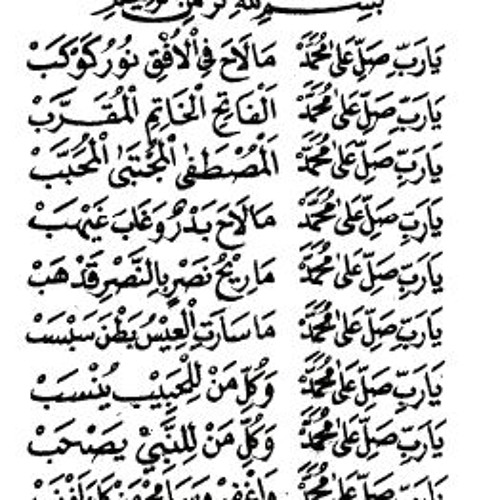 بِسْمِ اللهِ الرَّحْمٰنِ الرَّحِيْمِ
يَارَبِّ صَلِّ عَلىٰ مُحَمَّدْ مَالَاحَ فِي الْاُفْقِ نُوْرُ كَوْكَبْ
يَارَبِّ صَلِّ عَلىٰ مُحَمَّدْ اَلْفَاتِحِ الْخَاتِمِ الْمُقَرَّبْ
يَارَبِّ صَلِّ عَلىٰ مُحَمَّدْ اَلْمُصْطَفٰى الْمُجْتَبٰى الْمُحَبَّبْ
يَارَبِّ صَلِّ عَلىٰ مُحَمَّدْ مَالَاحَ بَدْرٌ وَغَابَ غَيْهَبْ
يَارَبِّ صَلِّ عَلىٰ مُحَمَّدْ مَارِيْحُ نَصْرٍ بِالنَّصْرِ قَدْهَبْ
يَارَبِّ صَلِّ عَلىٰ مُحَمَّدْ مَاسَارَتِ الْعِيْسُ بَطْنَ سَبْسَبْ
يَارَبِّ صَلِّ عَلىٰ مُحَمَّدْ وَكُلِّ مَنْ لِلْحَبِيْبِ يُنْسَبْ
يَارَبِّ صَلِّ عَلىٰ مُحَمَّدْ وَكُلِّ مَنْ لِلنَّبِيِّ يَصْحَبْ
يَارَبِّ صَلِّ عَلىٰ مُحَمَّدْ وَاغْفِرْ وَسَامِحْ مَنْ